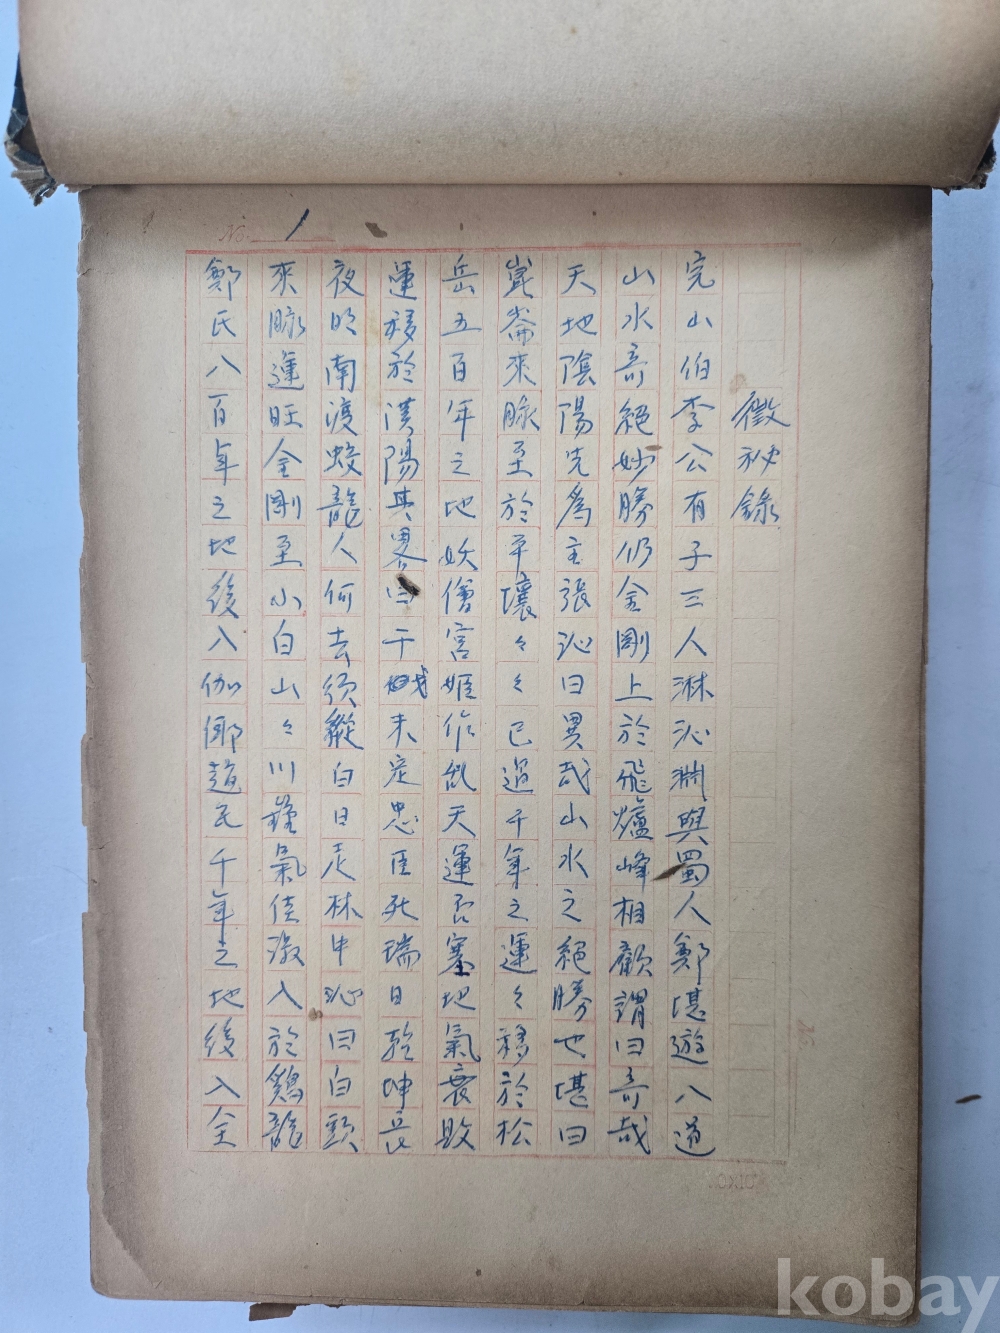 No. 1
徵秘錄
完山伯李公有子三人淋沁渊與蜀人鄭堪遊八道
山水奇絕妙勝仍金剛上於飛爐峰相歡謂曰奇哉
天地陰陽先爲主張沁曰異哉山水之絕勝也堪曰
崑崙來脉至於平壤々々已過千年之運々移於松
岳五百年之地妖僧宮姬作乱天運否塞地氣衰敗
運移於漢陽其畧曰干戈未定忠臣死瑞日乾坤長
夜南渡蛟龍人何去須縱白日走林中沁曰白頭
來脉運旺金剛至小白山々川鍾氣佳入於鷄龍
鄭氏八百年之地後入伽倻趙氏千年之地後入全
kobay